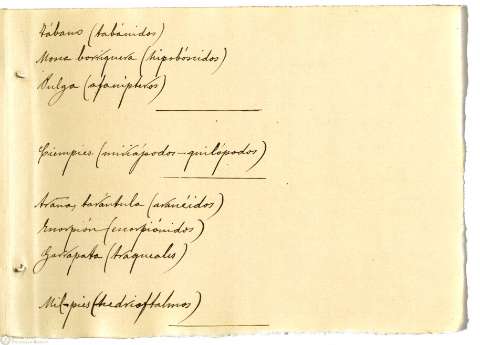 Tábano (tabánidos)
Mosca borriquera (hipobóscidos)
Pulga (afanípteros)
Ciempies (miriápodos-quilópodos)
Araña, tarántula (aranéidos)
Escorpión (escorpiónidos)
Garrapata (traqueales)
Mil-pies (hedrioftalmos)